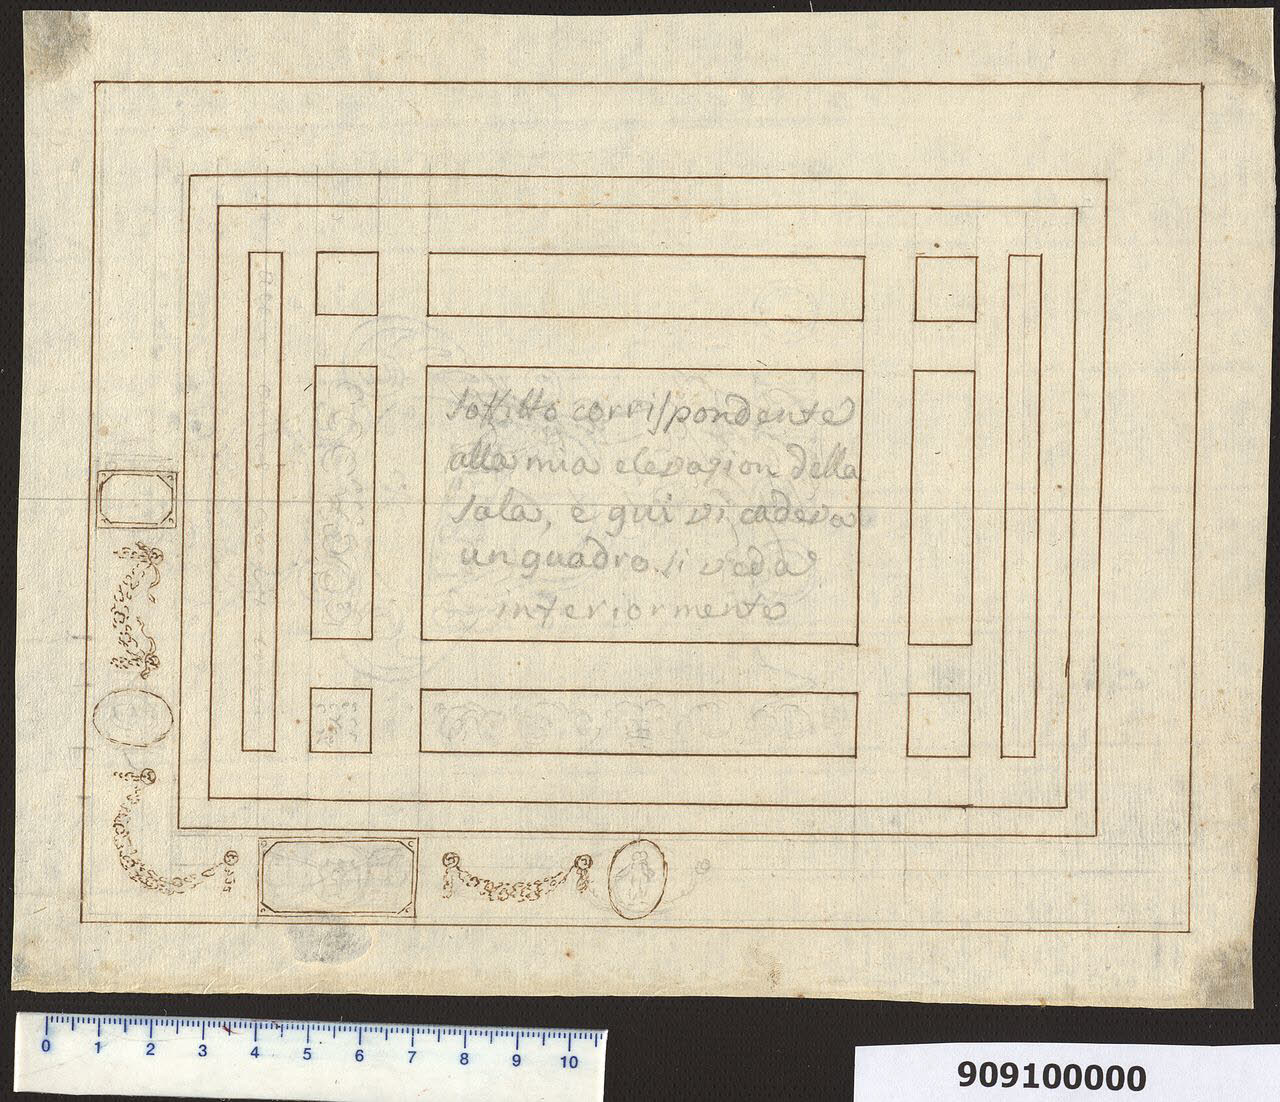 soffitto corrispondente
alla mia elevazion della
sala, e qui vi cadeva
un quadro si veda
inferiormente
0 1 2 3 4 5 6 7 8 9 10
909100000